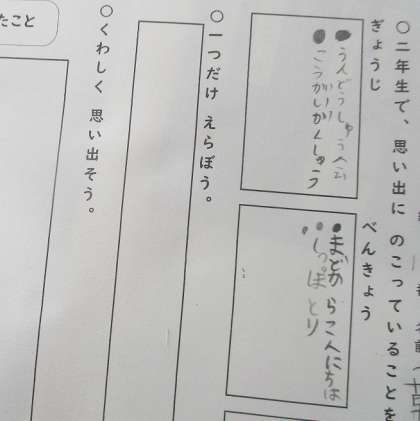 ○二年生で、思い出に のこっていることを
ぎょうじ
●うんどう
●こうがいがくしゅう
べんきょう
●まどからこんにちは
●しっぽとり
○一つだけ えらぼう。
○くわしく 思い出そう。
たこと